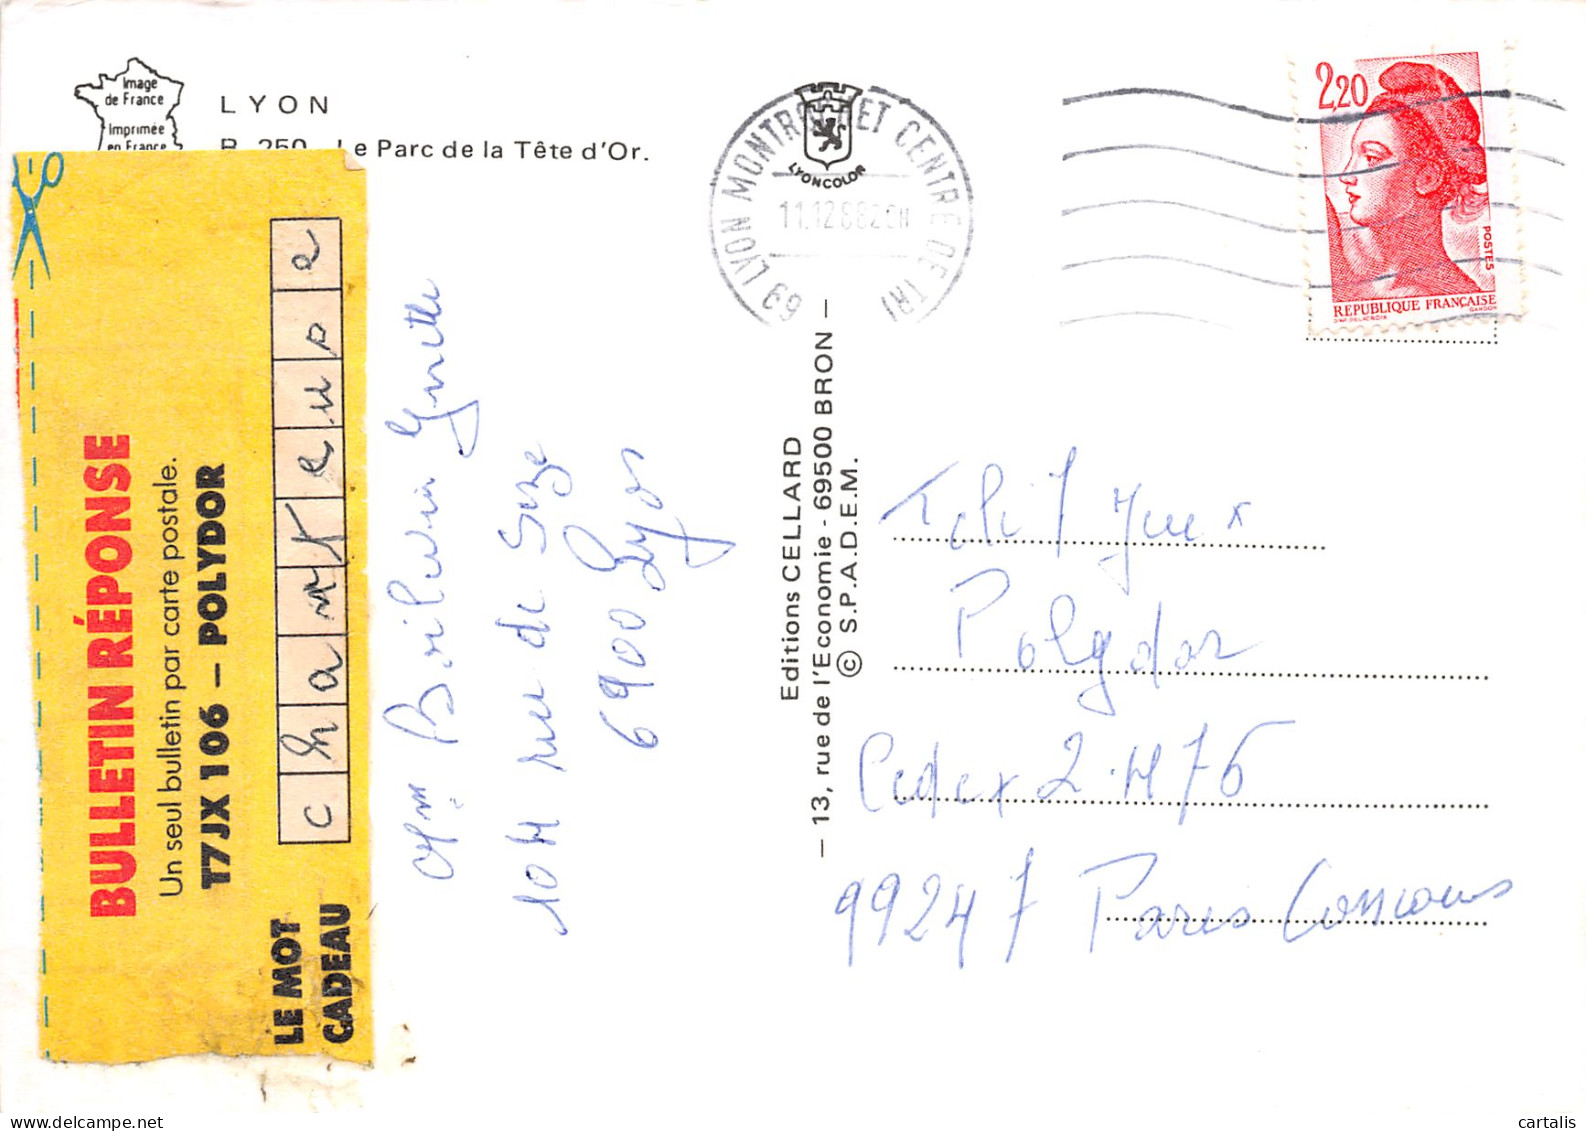 Image
de France
Imprimée
en France
LYON
R 250 Le Parc de la Tête d'Or.
69 LYON MONTROCHET CENTRE DE TRI
11.12 88 20H
LYONCOLOR
2,20
POSTES
REPUBLIQUE FRANÇAISE
D'AP. DELACROIX GANDON
BULLETIN RÉPONSE
Un seul bulletin par carte postale.
T7JX 106 – POLYDOR
LE MOT
CADEAU
chanteuse
Ginette
104 rue de Sèze
6900 Lyon
Editions CELLARD
— 13, rue de l'Economie - 69500 BRON —
© S.P.A.D.E.M.
Télé 7 Jeux
Polydor
Cedex 2476
99247 Paris Concours
cartalis.com